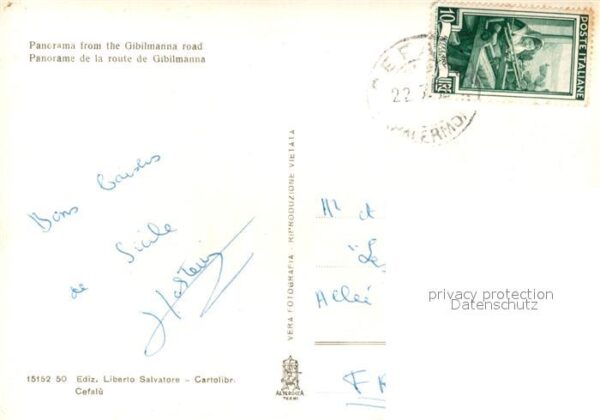 Panorama from the Gibilmanna road
Panorame de la route de Gibilmanna
10
POSTE ITALIANE
22
PALERMO
Bons baisers
de Sicile
VERA FOTOGRAFIA - RIPRODUZIONE VIETATA
Allée
privacy protection
Datenschutz
15152 50 Ediz. Liberto Salvatore - Cartolibr.
Cefalù
ALTEROCCA
TERNI